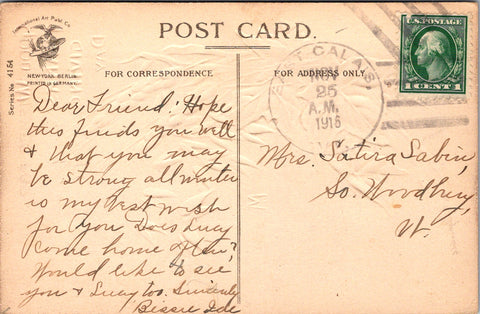 International Art Publ. Co.
POST CARD.
NEW YORK-BERLIN
PRINTED IN GERMANY.
Series No 4154
FOR CORRESPONDENCE
FOR ADDRESS ONLY
EAST CALAIS
NOV
25
A.M.
1916
U.S. POSTAGE
1 CENT 1
Dear Friend: Hope
this finds you well
& that you may
be strong all winter
is my best wish
for you. Does Lucy
come home often?
Would like to see
you & Lucy too. Sincerely
Bessie Ide
Mrs. Satira Sabin,
So. Woodbury,
Vt.